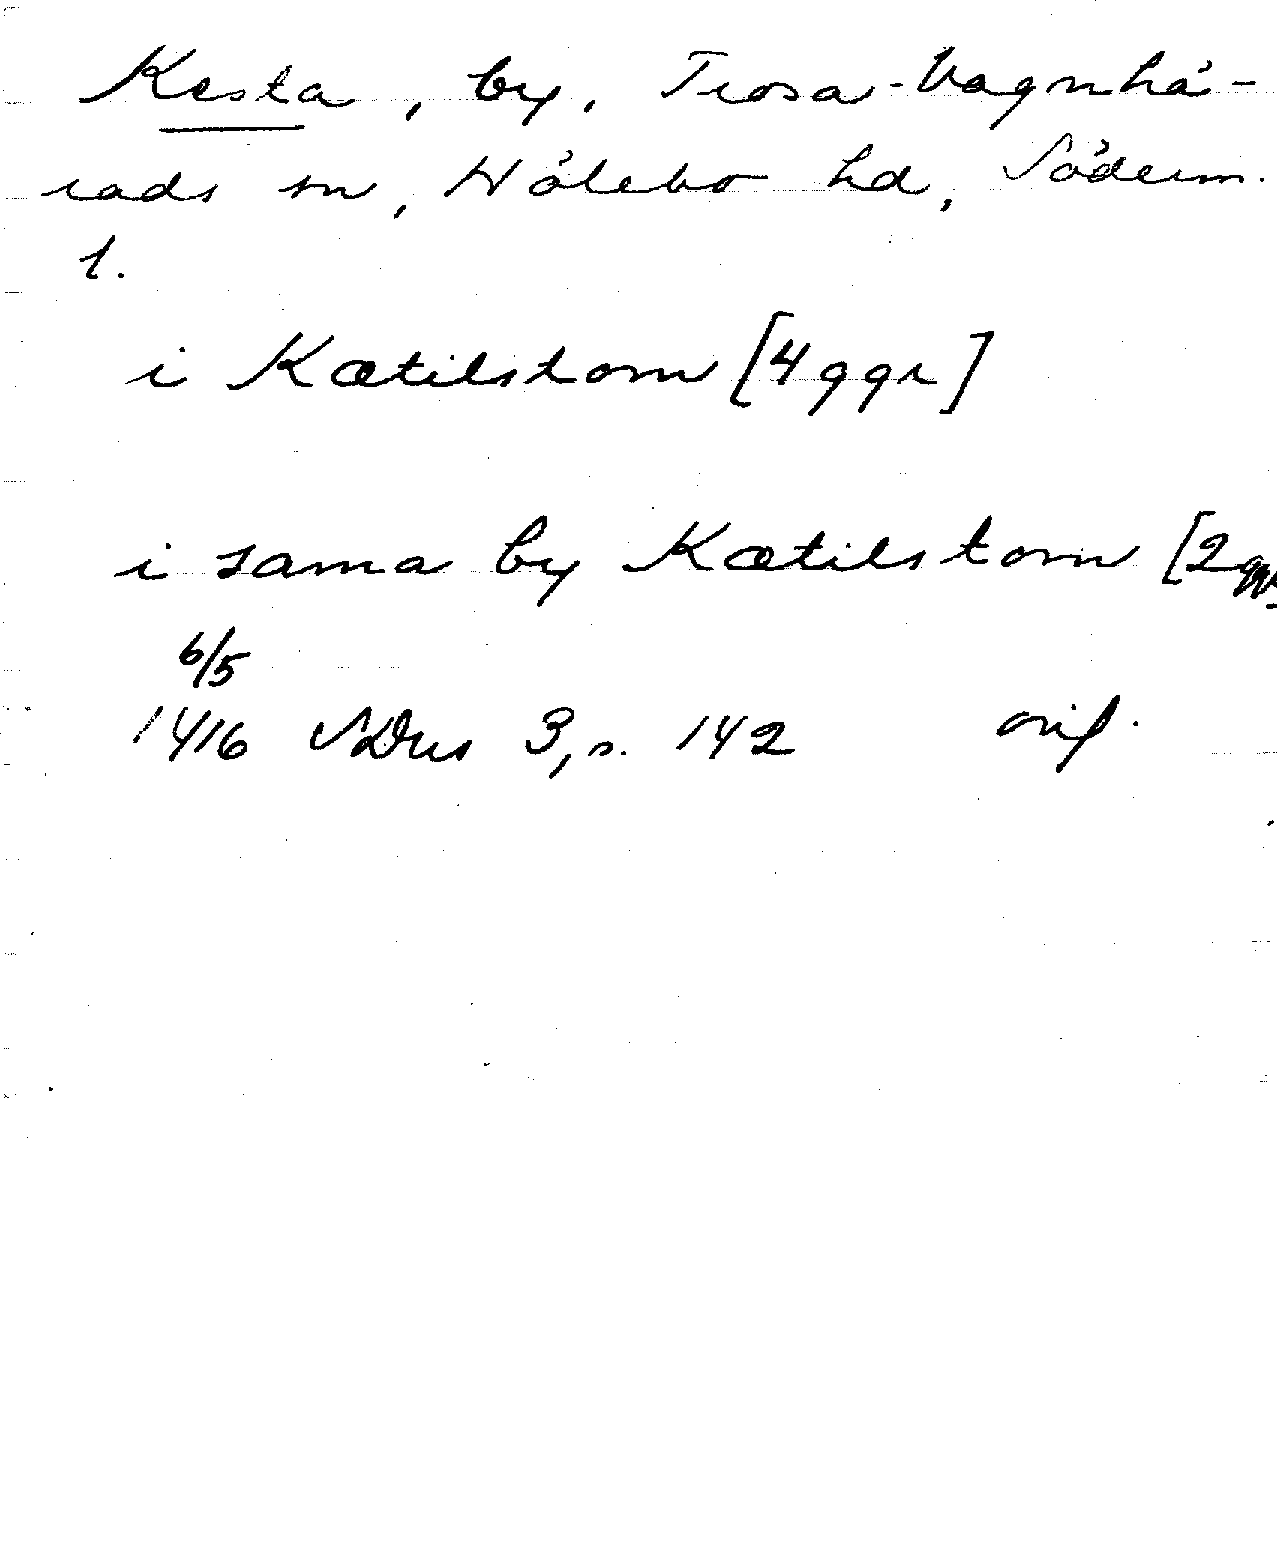 Kesta, by, Trosa-Vagnhä-
rads sn, Hölebo hd, Söderm.
l.
i Kætilstom [4 ggr]
i sama by Kætilstom [2 ggr]
6/5
1416 SDns 3, s. 142 orig.